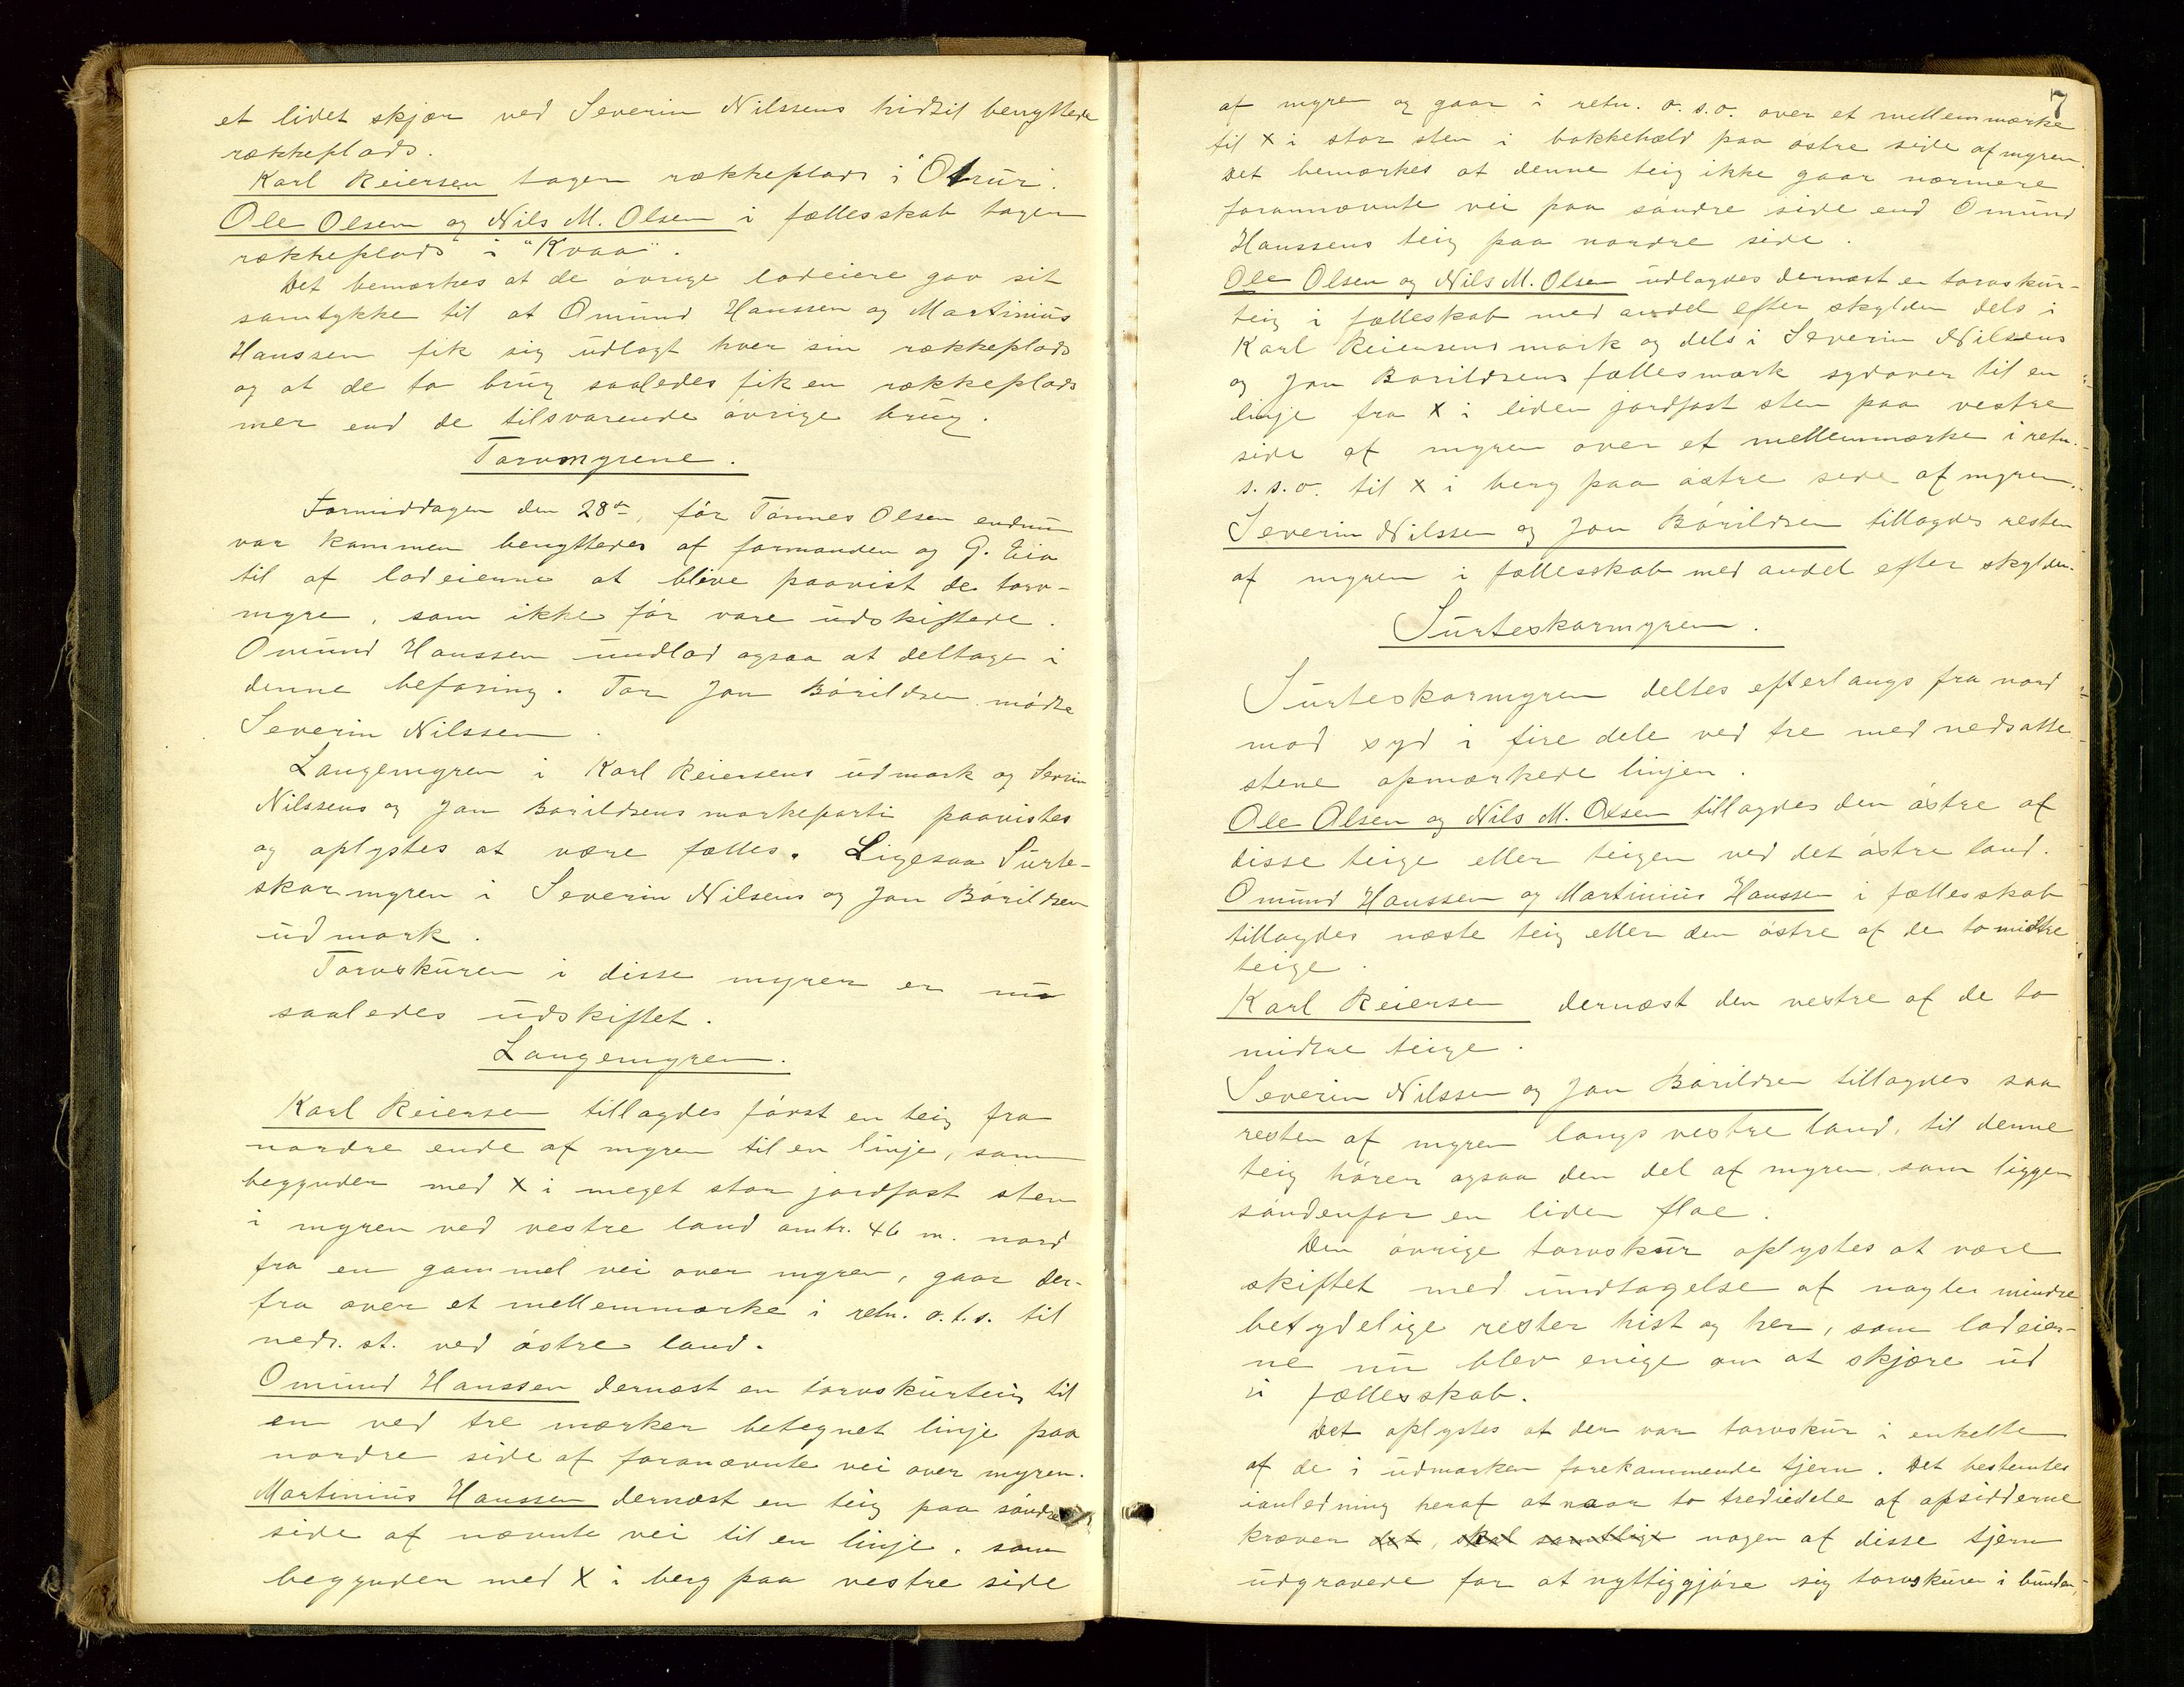 et lidet skjær ved Severin Nilssens hidtil benyttede
rækkeplads.
Karl Reiersen tager rækkeplads i "Otrur".
Ole Olsen og Nils M. Olsen i fællesskab tager
rækkeplads i "Kvaa".
Det bemærkes at de øvrige lodeiere gav sit
samtykke til at Omund Hanssen og Martinius
Hanssen fik sig udlagt hver sin rækkeplads
og at de to brug saaledes fik en rækkeplads
mer end de tilsvarende øvrige brug.
Torvmyrene.
Formiddagen den 28de, før Tønnes Olsen endnu
var kommen benyttedes af formanden og G. Eia
til af lodeierne at blive paavist de torv-
myre, som ikke før vare udskiftede.
Omund Hanssen undlod ogsaa at deltage i
denne befaring. For Jon Bårildsen mødte
Severin Nilssen.
Langemyren i Karl Reiersens udmark og Sevrin
Nilssens og Jon Borildsens markeparti paavistes
og oplystes at være fælles. Ligesaa Surte-
skarmyren i Severin Nilsens og Jon Bårildsen
udmark.
Torvskuren i disse myrer er nu
saaledes udskiftet.
Langemyren.
Karl Reiersen tillagdes først en teig fra
nordre ende af myren til en linje, som
begynder med X i meget stor jordfast sten
i myren ved vestre land omtr. 46 m. nord
fra en gammel vei over myren, gaar der-
fra over et mellemmærke i retn. o.t.s. til
neds. st. ved østre land.
Omund Hanssen dernæst en torvskurteig til
en ved tre mærker betegnet linje paa
nordre side af forannævnte vei over myren.
Martinius Hanssen dernæst en teig paa søndre
side af nævnte vei til en linje, som
begynder med X i berg paa vestre side
7
af myren og gaar i retn. o.s.o. over et mellemmærke
til X i stor sten i bakkehæld paa østre side af myren.
Det bemærkes at denne teig ikke gaar nærmere
forannævnte vei paa søndre side end Omund
Hanssens teig paa nordre side.
Ole Olsen og Nils M. Olsen udlagdes dernæst en torvskur-
teig i fælleskab med andel efter skylden dels i
Karl Reiersens mark og dels i Severin Nilsens
og Jon Borildsens fællesmark sydover til en
linje fra X i liden jordfast sten paa vestre
side af myren over et mellemmærke i retn.
s.s.o. til X i berg paa østre side af myren.
Severin Nilssen og Jon Bårildsen tillagdes resten
af myren i fællesskab med andel efter skylden.
Surteskarmyren.
Surteskarmyren deltes efterlangs fra nord
mod syd i fire dele ved tre med nedsatte
stene opmærkede linjer.
Ole Olsen og Nils M. Olsen tillagdes den østre af
disse teige eller teigen ved det østre land.
Omund Hanssen og Martinius Hanssen i fællesskab
tillagdes næste teig eller den østre af de to midtre
teige.
Karl Reiersen dernæst den vestre af de to
midtre teige.
Severin Nilssen og Jon Bårildsen tillagdes saa
resten af myren langs vestre land, til denne
teig hører ogsaa den del af myren, som ligger
søndenfor en liden flae.
Den øvrige torvskur oplystes at være
skiftet med undtagelse af nogle mindre
betydelige rester hist og her, som lodeier-
ne nu blev enige om at skjære ud
i fællesskab.
Det oplystes at der var torvskur i enkelte
af de i udmarken forekommende tjern. Det bestemtes
ianledning heraf at naar to trediedele af opsidderne
kræver det, skal samtlige nogen af disse tjern
udgravede for at nyttiggjøre sig torvskuren i bunden,